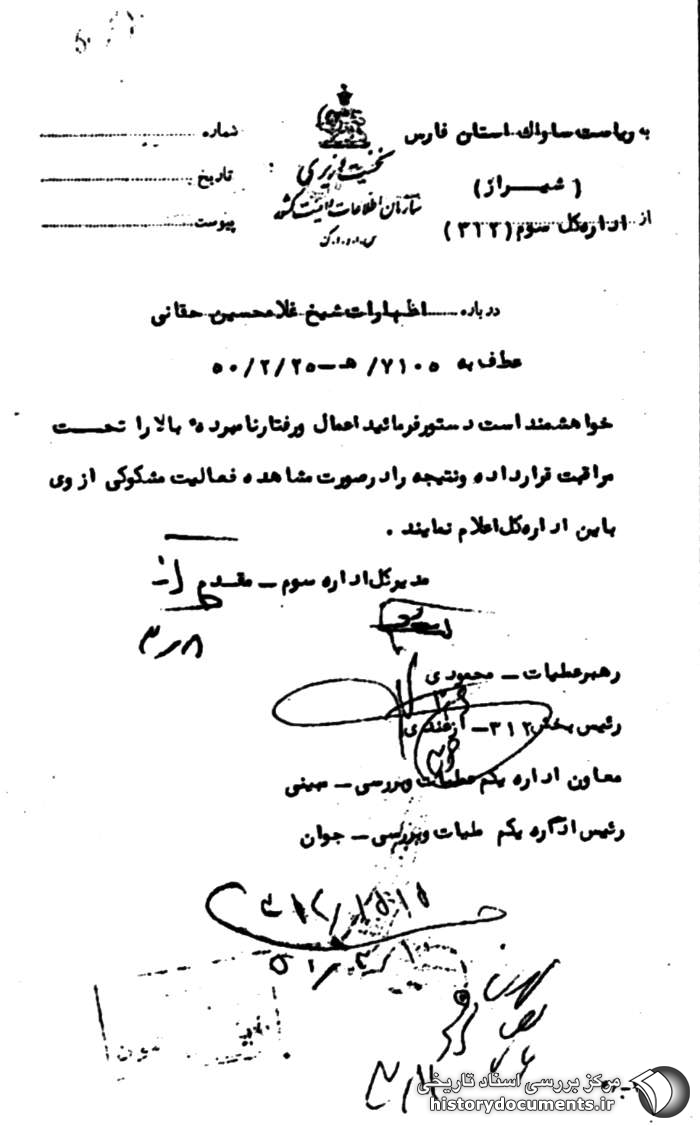 به ریاست ساواک استان فارس
( شیراز )
از اداره کل سوم ( ۳۱۲ )
نخست وزیری
سازمان اطلاعات و امنیت کشور
س.ا.و.ا.ک
شماره
تاریخ
پیوست
درباره اظهارات شیخ غلامحسین حقانی
عطف به ۷۱۰۵/ هـ - ۵۰/۲/۲۵
خواهشمند است دستور فرمائید اعمال و رفتار نامبرده بالا را تحت
مراقبت قرار داده و نتیجه را در صورت مشاهده فعالیت مشکوکی از وی
باین اداره کل اعلام نمایند .
مدیر کل اداره سوم - مقدم
۳/۸
رهبر عملیات - محمودی
رئیس بخش ۳۱۲ - ازغندی
معاون اداره یکم عملیات و بررسی - مهینی
رئیس اداره یکم عملیات و بررسی - جوان
مرکز بررسی اسناد تاریخی
historydocuments.ir